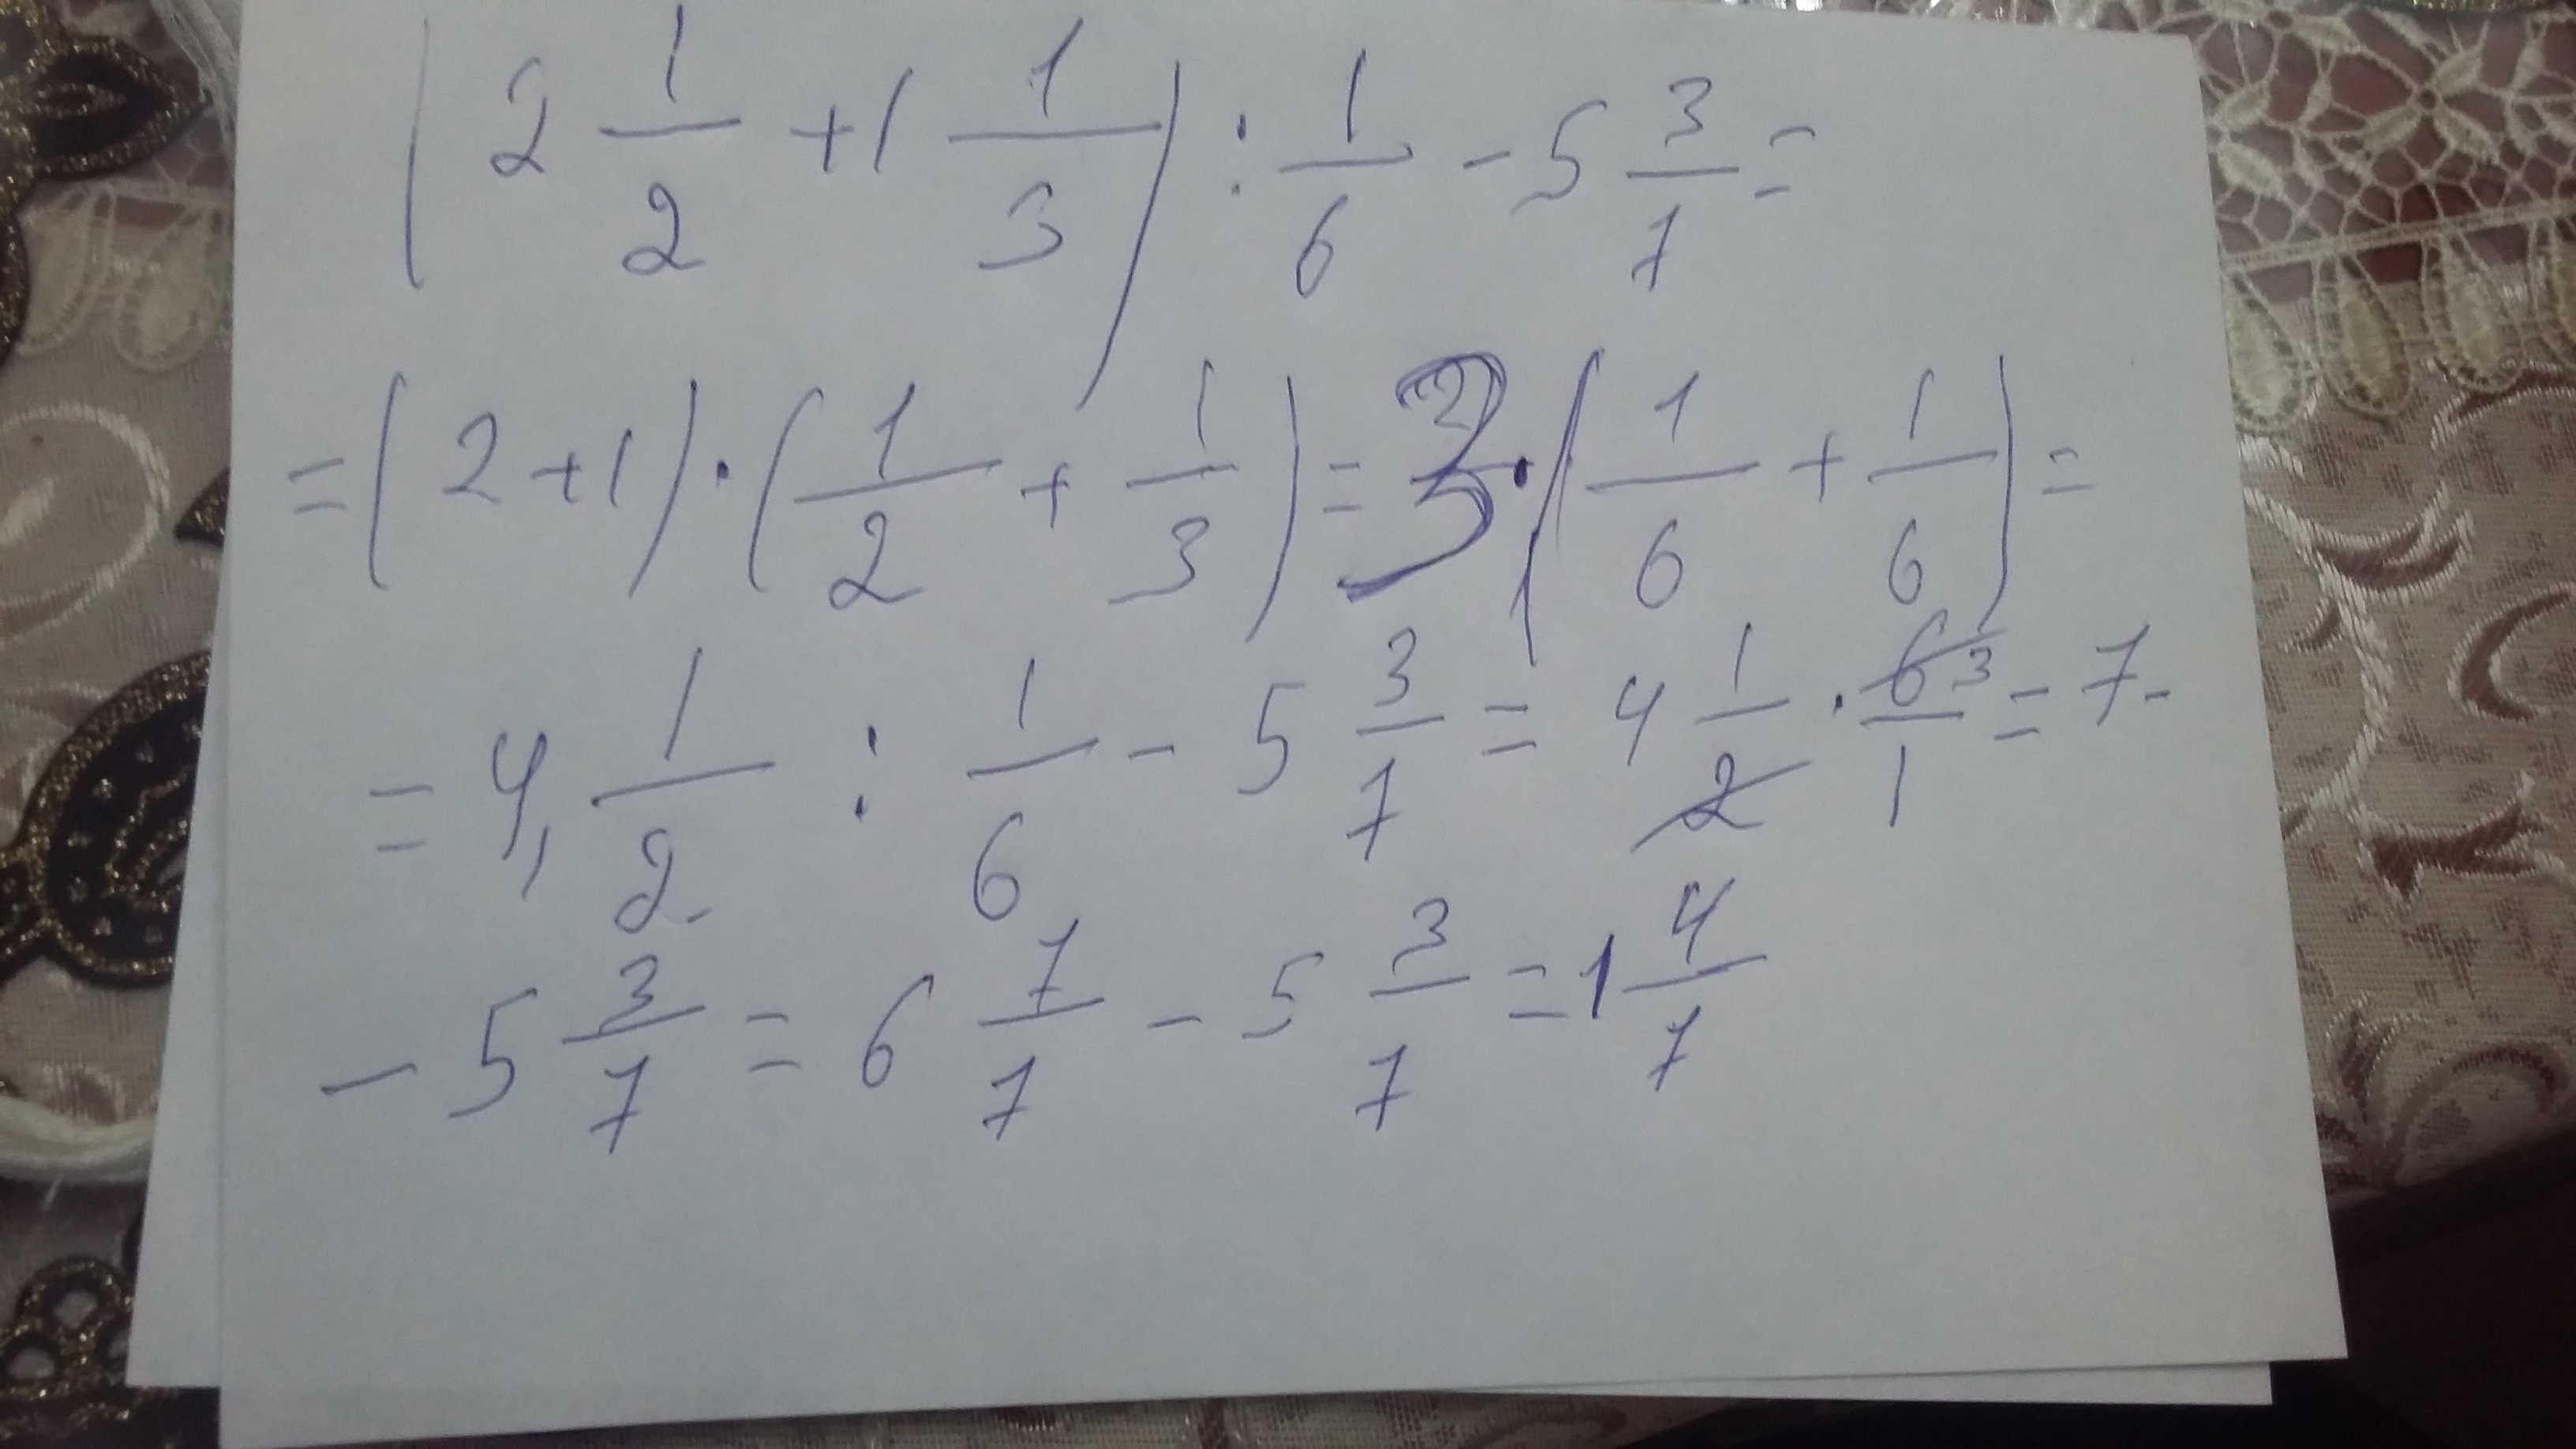 (2 1/2 + 1 1/3) : 1/6 - 5 3/7 =
= (2 + 1) · (1/2 + 1/3) = 3 · (1/6 + 1/6) =
= 4, 1/2 : 1/6 - 5 3/7 = 4 1/2 · 6 3/1 = 7 -
- 5 3/7 = 6 7/7 - 5 3/7 = 1 4/7